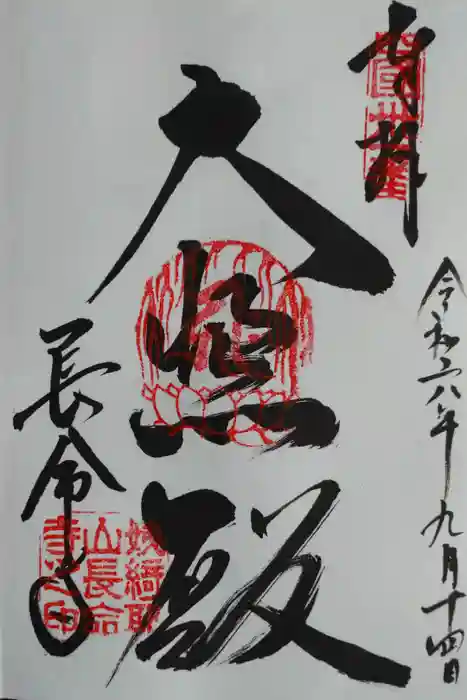 奉拝
令和六年九月十四日
大悲殿
長命寺
姨綺耶
山長命
寺之印